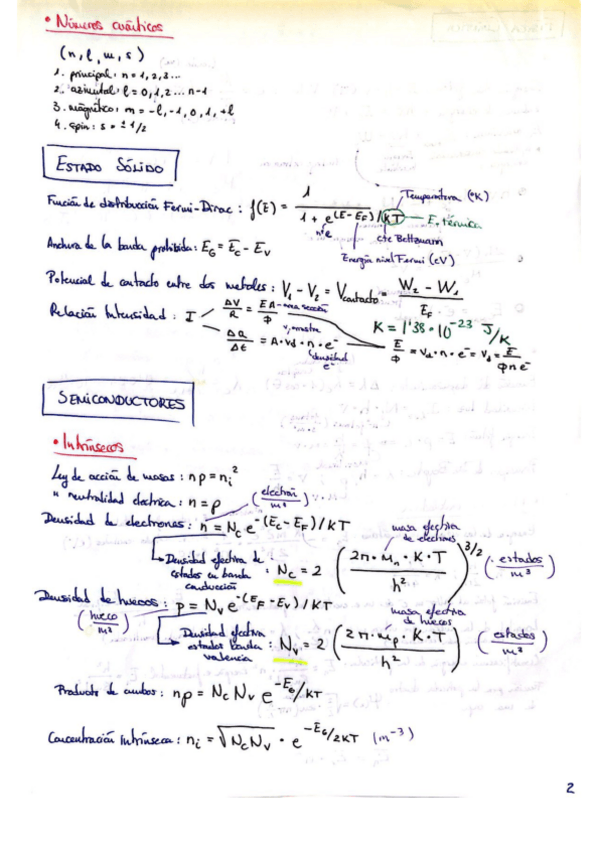 • Números cuánticos
(n, l, m, s)
1. principal: n = 1, 2, 3...
2. azimutal: l = 0, 1, 2 ... n-1
3. magnético: m = -l, -1, 0, 1, +l
4. spin: s = ± 1/2
ESTADO SÓLIDO
Función de distribución Fermi-Dirac: f(E) = 1 / (1 + e^(E-E_F)/KT)
Temperatura (ºK)
E. térmica
nº e
cte Boltzmann
Energía nivel Fermi (eV)
Anchura de la banda prohibida: E_G = E_C - E_V
Potencial de contacto entre dos metales: V_1 - V_2 = V_contacto = (W_2 - W_1) / E_F
Relación Intensidad: I
ΔV/R = EA/Φ
sección
K = 1'38·10^-23 J/K
ΔQ/Δt = A·v_d·n·e^-
v. arrastre
densidad e^-
E/Φ = v_d·n·e^- = v_d = E/(Φ n e^-)
SEMICONDUCTORES
• Intrínsecos
Ley de acción de masas: np = n_i^2
" neutralidad eléctrica: n = p
(electrón/m³)
Densidad de electrones: n = N_C e^-(E_C-E_F)/KT
masa efectiva de electrones
Densidad efectiva de estados en banda conducción: N_C = 2 (2π·m_n·K·T / h²)^3/2 (estados/m³)
Densidad de huecos: p = N_V e^-(E_F-E_V)/KT
(hueco/m³)
masa efectiva de huecos
Densidad efectiva estados banda valencia: N_V = 2 (2π·m_p·K·T / h²) (estados/m³)
Producto de ambos: np = N_C N_V e^-E_G/KT
Concentración Intrínseca: n_i = √(N_C N_V) · e^-E_G/2KT (m^-3)
2